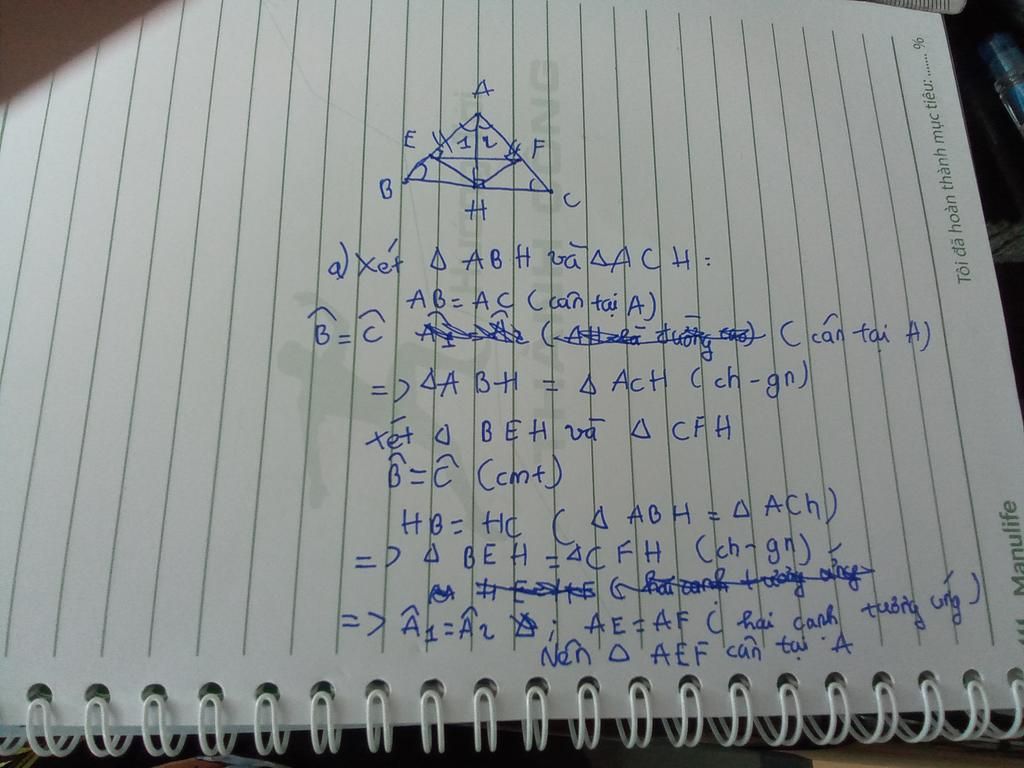 A
E 1 2 F
B H C
a) Xét Δ ABH và Δ ACH :
AB = AC (cân tại A)
B̂ = Ĉ (cân tại A)
=> ΔABH = Δ ACH (ch - gn)
Xét Δ BEH và Δ CFH
B̂ = Ĉ (cmt)
HB = HC ( Δ ABH = Δ ACh)
=> Δ BEH = ΔCFH (ch - gn)
=> Â1 = Â2 ; AE = AF ( hai cạnh tương ứng)
Nên Δ AEF cân tại A
Tôi đã hoàn thành mục tiêu: ....... %
Manulife